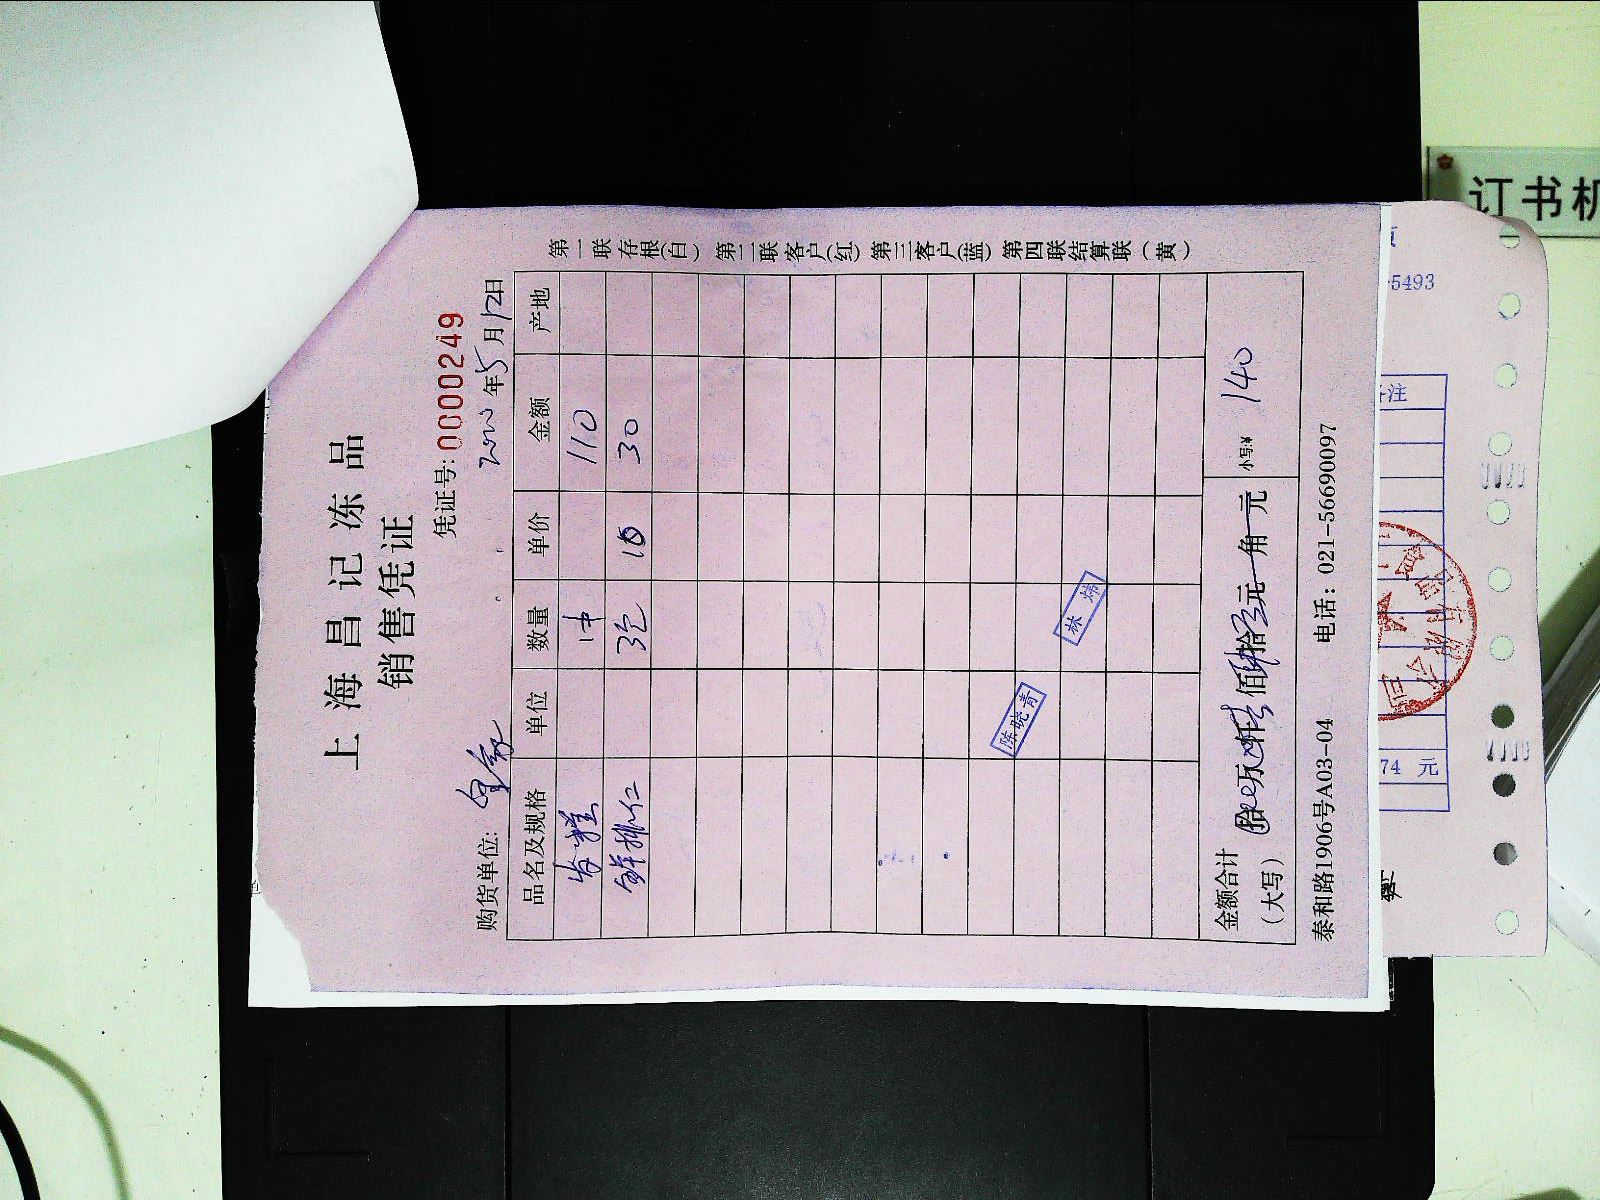 上海昌记冻品
销售凭证
凭证号: 0000249
购货单位:
年5月12日
品名及规格 单位 数量 单价 金额 产地
110
鲜虾仁 3包 10 30
陈晓青
林炜
金额合计
(大写) 拾 万 仟 佰 拾 元 角 元 小写:¥ 140
泰和路1906号A03-04 电话: 021-56690097
第一联存根(白) 第二联客户(红) 第三客户(蓝) 第四联结算联(黄)
订书机
5493
注
74 元